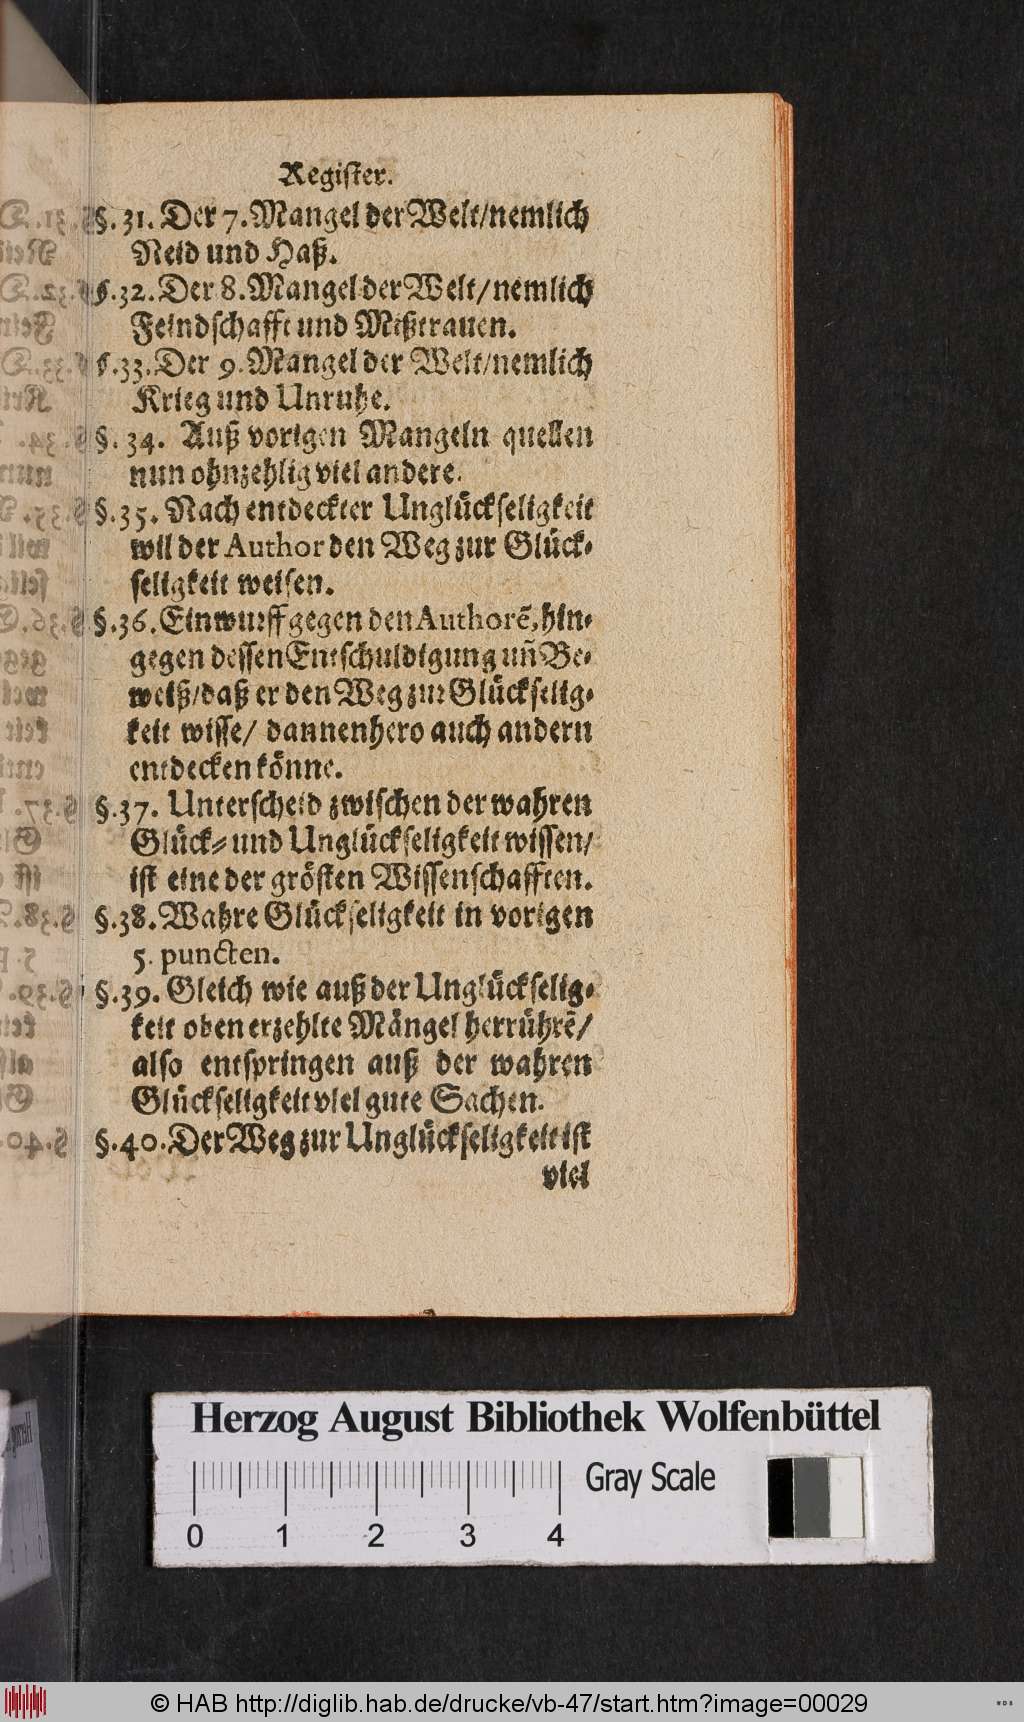 Register.
§. 31. Der 7. Mangel der Welt/nemlich
Neid und Haß.
§. 32. Der 8. Mangel der Welt/nemlich
Feindschafft und Mißtrauen.
§. 33. Der 9. Mangel der Welt/nemlich
Krieg und Unruhe.
§. 34. Auß vorigen Mangeln quellen
nun ohnzehlig viel andere.
§. 35. Nach entdeckter Unglückseligkeit
wil der Author den Weg zur Glück-
seligkeit weisen.
§. 36. Einwurff gegen den Authorẽ, hin-
gegen dessen Entschuldigung uñ Be-
weiß/daß er den Weg zur Glückselig-
keit wisse/ dannenhero auch andern
entdecken könne.
§. 37. Unterscheid zwischen der wahren
Glück- und Unglückseligkeit wissen/
ist eine der grösten Wissenschafften.
§. 38. Wahre Glückseligkeit in vorigen
5. puncten.
§. 39. Gleich wie auß der Unglückselig-
keit oben erzehlte Mängel herrührẽ/
also entspringen auß der wahren
Glückseligkeit viel gute Sachen.
§. 40. Der Weg zur Unglückseligkeit ist
viel
Herzog August Bibliothek Wolfenbüttel
Gray Scale
0 1 2 3 4
© HAB http://diglib.hab.de/drucke/vb-47/start.htm?image=00029